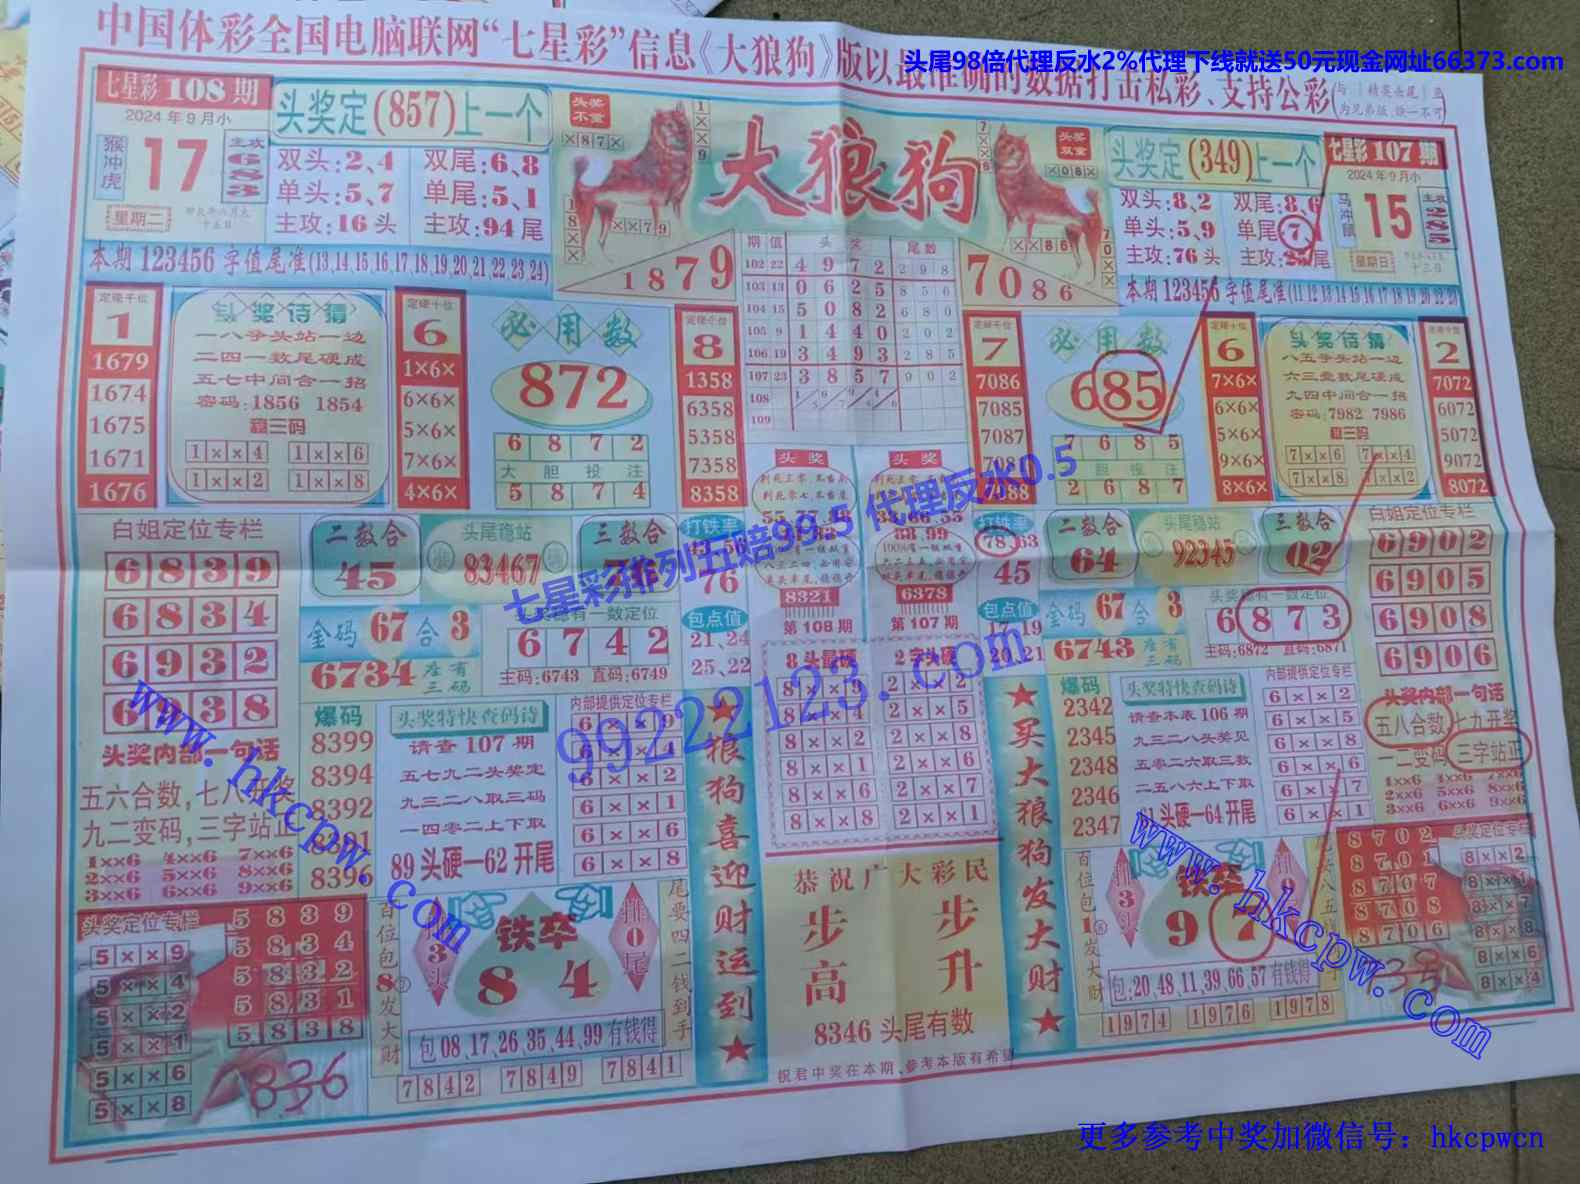 中国体彩全国电脑联网“七星彩”信息《大狼狗》版以最准确的数据打击私彩、支持公彩
头尾98倍代理反水2%代理下线就送50元现金网址66373.com
七星彩 108 期
2024年9月小
猴冲虎
17
主攻 683
星期二
头奖定(857)上一个
双头:2、4 双尾:6、8
单头:5、7 单尾:5、1
主攻:16头 主攻:94尾
本期123456字值尾准(13,14,15,16,17,18,19,20,21,22,23,24)
头奖不重
×87×
××79
1879
大狼狗
头奖双重
×08×
××86
7086
头奖定(349)上一个
双头:8、2 双尾:8、6
单头:5、9 单尾:7
主攻:76头
七星彩 107 期
2024年9月小
马冲鼠
15
主攻 285
星期日
本期123456字值尾准(11 12 13 14 15 16 17 18 19 20 22 23)
期 值 头奖 尾数
102 22 4 9 7 2 2 9 8
103 13 0 6 2 5 8 5 0
104 15 5 0 8 2 6 8 0
105 9 1 4 4 0 2 0 2
106 19 3 4 9 3 2 8 5
107 23 3 8 5 7 9 0 2
108
109
定硬千位
1
1679
1674
1675
1671
1676
头奖诗猜
一八争头站一边
二四一数尾硬成
五七中间合一招
密码:1856 1854
稳三码
1××4 1××6
1××2 1××1
定硬十位
6
1×6×
6×6×
5×6×
7×6×
4×6×
必用数
872
6 8 7 2
大胆投注
5 8 7 4
定硬千位
8
1358
6358
5358
7358
8358
定硬千位
7
7086
7085
7087
必用数
685
7 6 8 5
胆投注
2 6 8 7
定硬十位
6
7×6×
6×6×
5×6×
9×6×
8×6×
头奖诗猜
八五争头站一边
六三叠数尾硬成
九四中间合一招
密码:7982 7986
稳三码
7××6 7××4
7××8 7××2
2
7072
6072
5072
9072
8072
白姐定位专栏
6839
6834
6932
二数合
45
头尾稳站
83467
三数合
打铁率
76
包点值
21、24
25、22
金码67合3
6734 座有三码
6742
主码:6743 直码:6749
头奖
8321
第108期
头奖
6378
第107期
8头最硬
8××4
8××2
8××1
8××6
8××8
2字头硬
2××2
2××5
2××6
2××7
2××1
打铁率
78、63
45
包点值
17、19
20、21
二数合
64
头尾稳站
92345
三数合
02
金码67合3
6743 座有三码
头奖总有一数定位
6873
主码:6872 直码:6871
白姐定位专栏
6902
6905
6908
6906
头奖内部一句话
五六合数，七八开奖
九二变码，三字站正
1××6 4××6 7××6
2××6 5××6 8××6
3××6 6××6 9××6
爆码
8399
8394
8392
8391
8396
头奖特快查码诗
请查107期
五七九二头奖定
九三二八取三码
一四零二上下取
89头硬一62开尾
内部提供定位专栏
6××9
6××2
6××1
6××6
6××8
狼狗喜迎财运到
买大狼狗发大财
爆码
2342
2345
2348
2346
2347
头奖特快查码诗
请查本表106期
九三二八头奖见
五零二六取三数
二五八六上下取
61头硬一64开尾
内部提供定位专栏
6××2
6××5
6××8
6××6
6××7
6××1
头奖内部一句话
五八合数，七九开奖
一二变码，三字站正
1××6 4××6 7××6
2××6 5××6 8××6
3××6 6××6 9××6
头奖定位专栏
5××9
5××4
5××2
5××1
5××6
5××8
5839
5834
5832
5831
5838
836
百位包8发大财
排3头
铁卒
84
排0尾
尾要四二钱到手
包08、17、26、35、44、99有钱得
7842 7849 7841
恭祝广大彩民
步步高升
8346头尾有数
祝君中奖在本期，参考本版有希望
百位包1发大财
排3头
铁卒
97
包:20、48、11、39、66、57有钱得
1974 1976 1978
8702
8701
8707
8708
8706
8××2
8××7
8××8
8××6
8××4
七星彩排列五赔99.5 代理反水0.5
99222123.com
www.hkcpw.com
www.hkcpw.com
更多参考中奖加微信号：hkcpwcn